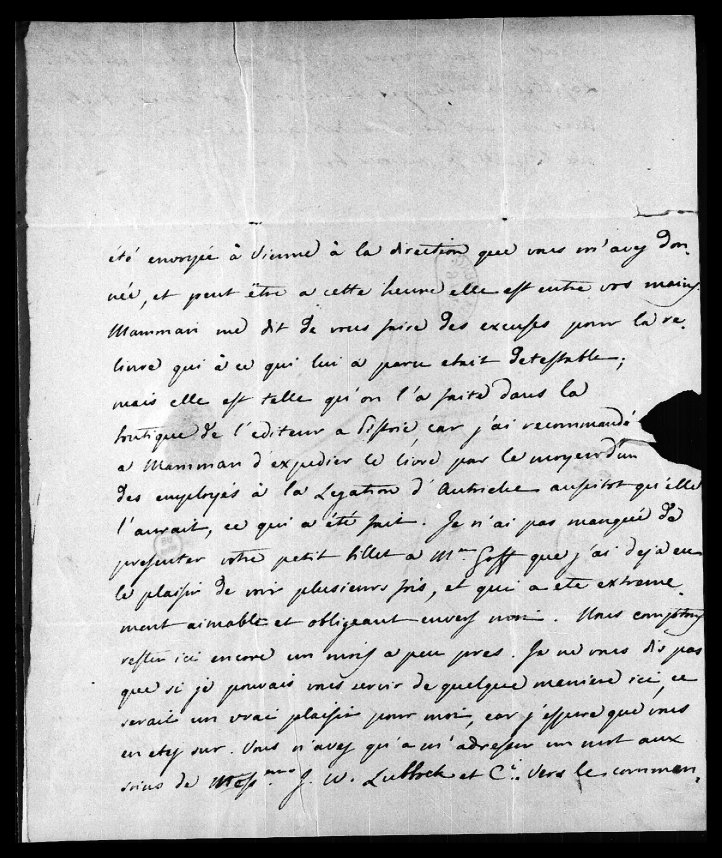 été envoyée à Vienne à la direction que vous m'avez don-
née, et peut être a cette heure elle est entre vos mains.
Mamman me dit de vous faire des excuses pour la re-
liure qui à ce qui lui a paru etait detestable;
mais elle est telle qu'on l'a faite dans la
boutique de l'editeur a car j'ai recommandé
a Mamman d'expedier le livre par le moyen d'un
des employés à la Legation d'Autriche aussitot qu'elle
l'aurait, ce qui a été fait. Je n'ai pas manqué de
presenter votre petit billet a Mr. Goff que j'ai deja eu
le plaisir de voir plusieurs fois, et qui a ete extreme-
ment aimable et obligeant envers moi. Nous comptons
rester ici encore un mois a peu pres. Je ne vous dis pas
que si je pouvais vous servir de quelque maniere ici, ce
serait un vrai plaisir pour moi, car j'espere que vous
en etes sur. Vous n'avez qu'a m'adresser un mot aux
soins de Mess. J. W. Lubbock et Cie. Vers le commen-